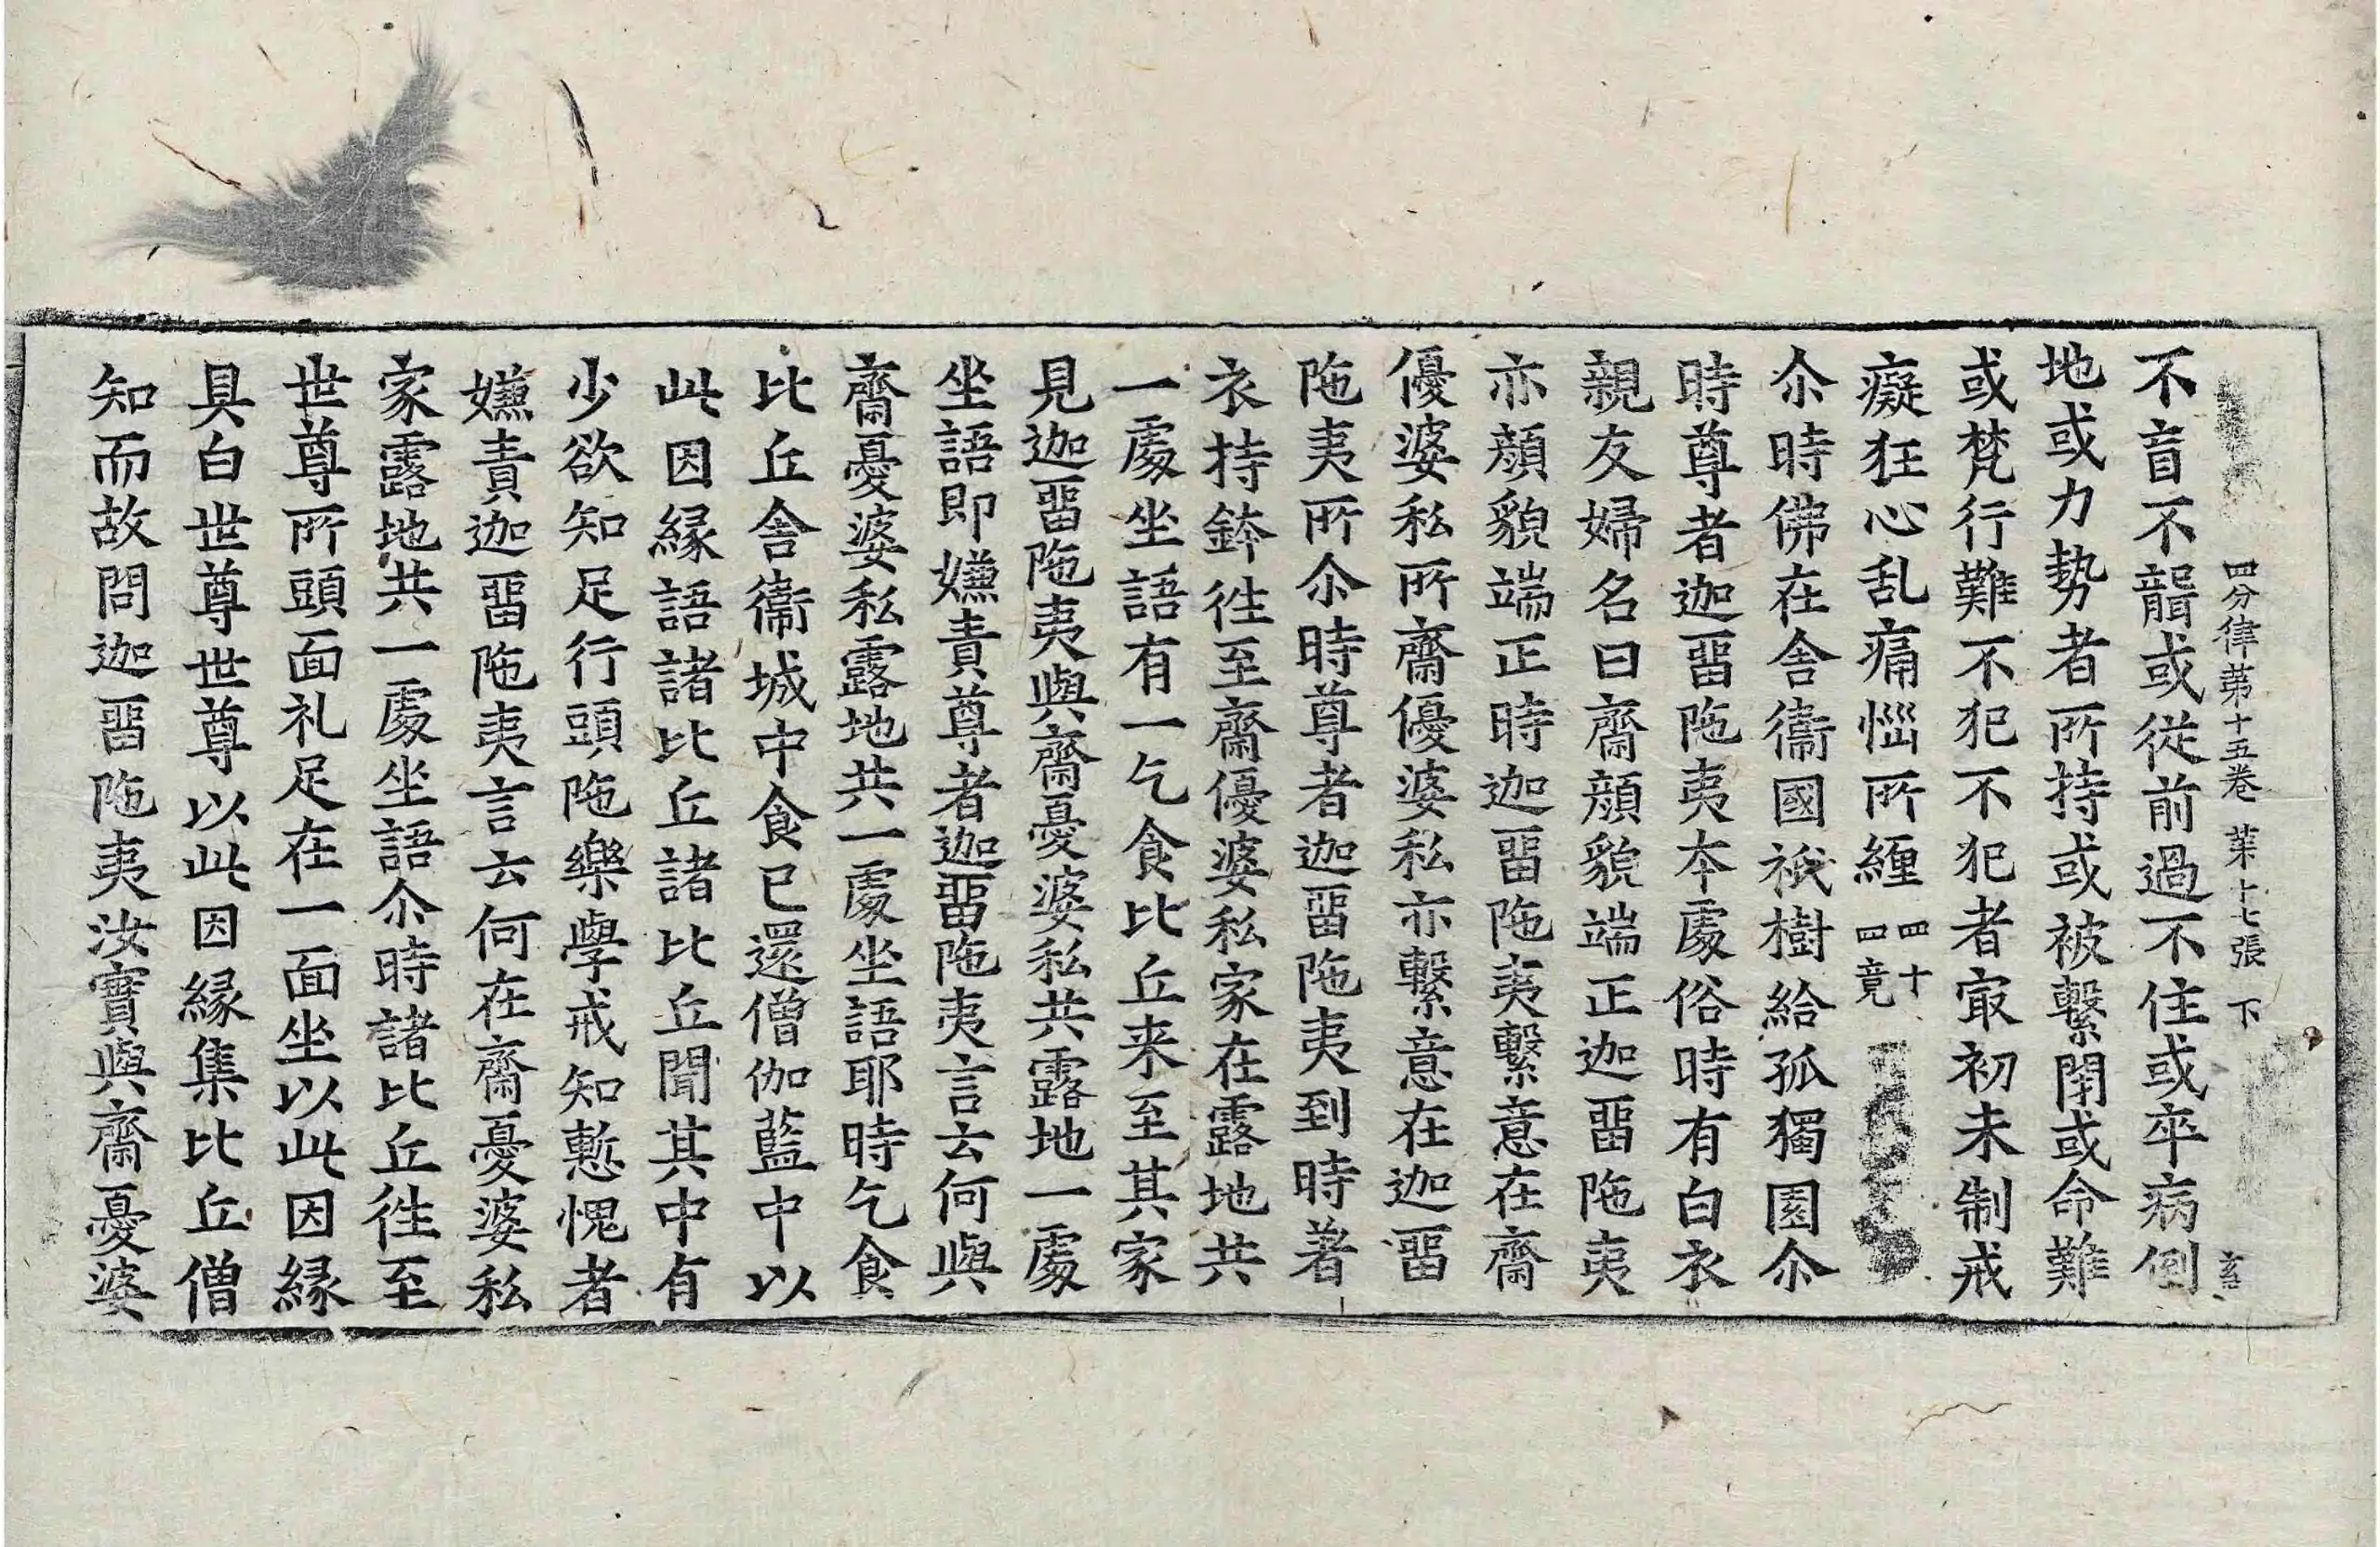 四分律第十五卷 苐十七張 下
不盲不聾或從前過不住或卒病倒
地或力勢者所持或被繫閇或命難
或梵行難不犯不犯者㝡初未制戒
癡狂心乱痛惱所纏 四十四竟
尒時佛在舍衞國祇樹給孤獨園尒
時尊者迦留陁夷本處俗時有白衣
親友婦名曰齋顔貌端正迦留陁夷
亦顔貌端正時迦留陁夷繫意在齋
優婆私所齋優婆私亦繫意在迦留
陁夷所尒時尊者迦留陁夷到時著
衣持鉢徃至齋優婆私家在露地共
一處坐語有一乞食比丘来至其家
見迦留陁夷與齋憂婆私共露地一處
坐語即嫌責尊者迦留陁夷言云何與
齋憂婆私露地共一處坐語耶時乞食
比丘舍衞城中食已還僧伽藍中以
此因緣語諸比丘諸比丘聞其中有
少欲知足行頭陁樂學戒知慙愧者
嫌責迦留陁夷言云何在齋憂婆私
家露地共一處坐語尒時諸比丘徃至
世尊所頭面礼足在一面坐以此因緣
具白世尊世尊以此因緣集比丘僧
知而故問迦留陁夷汝實與齋憂婆